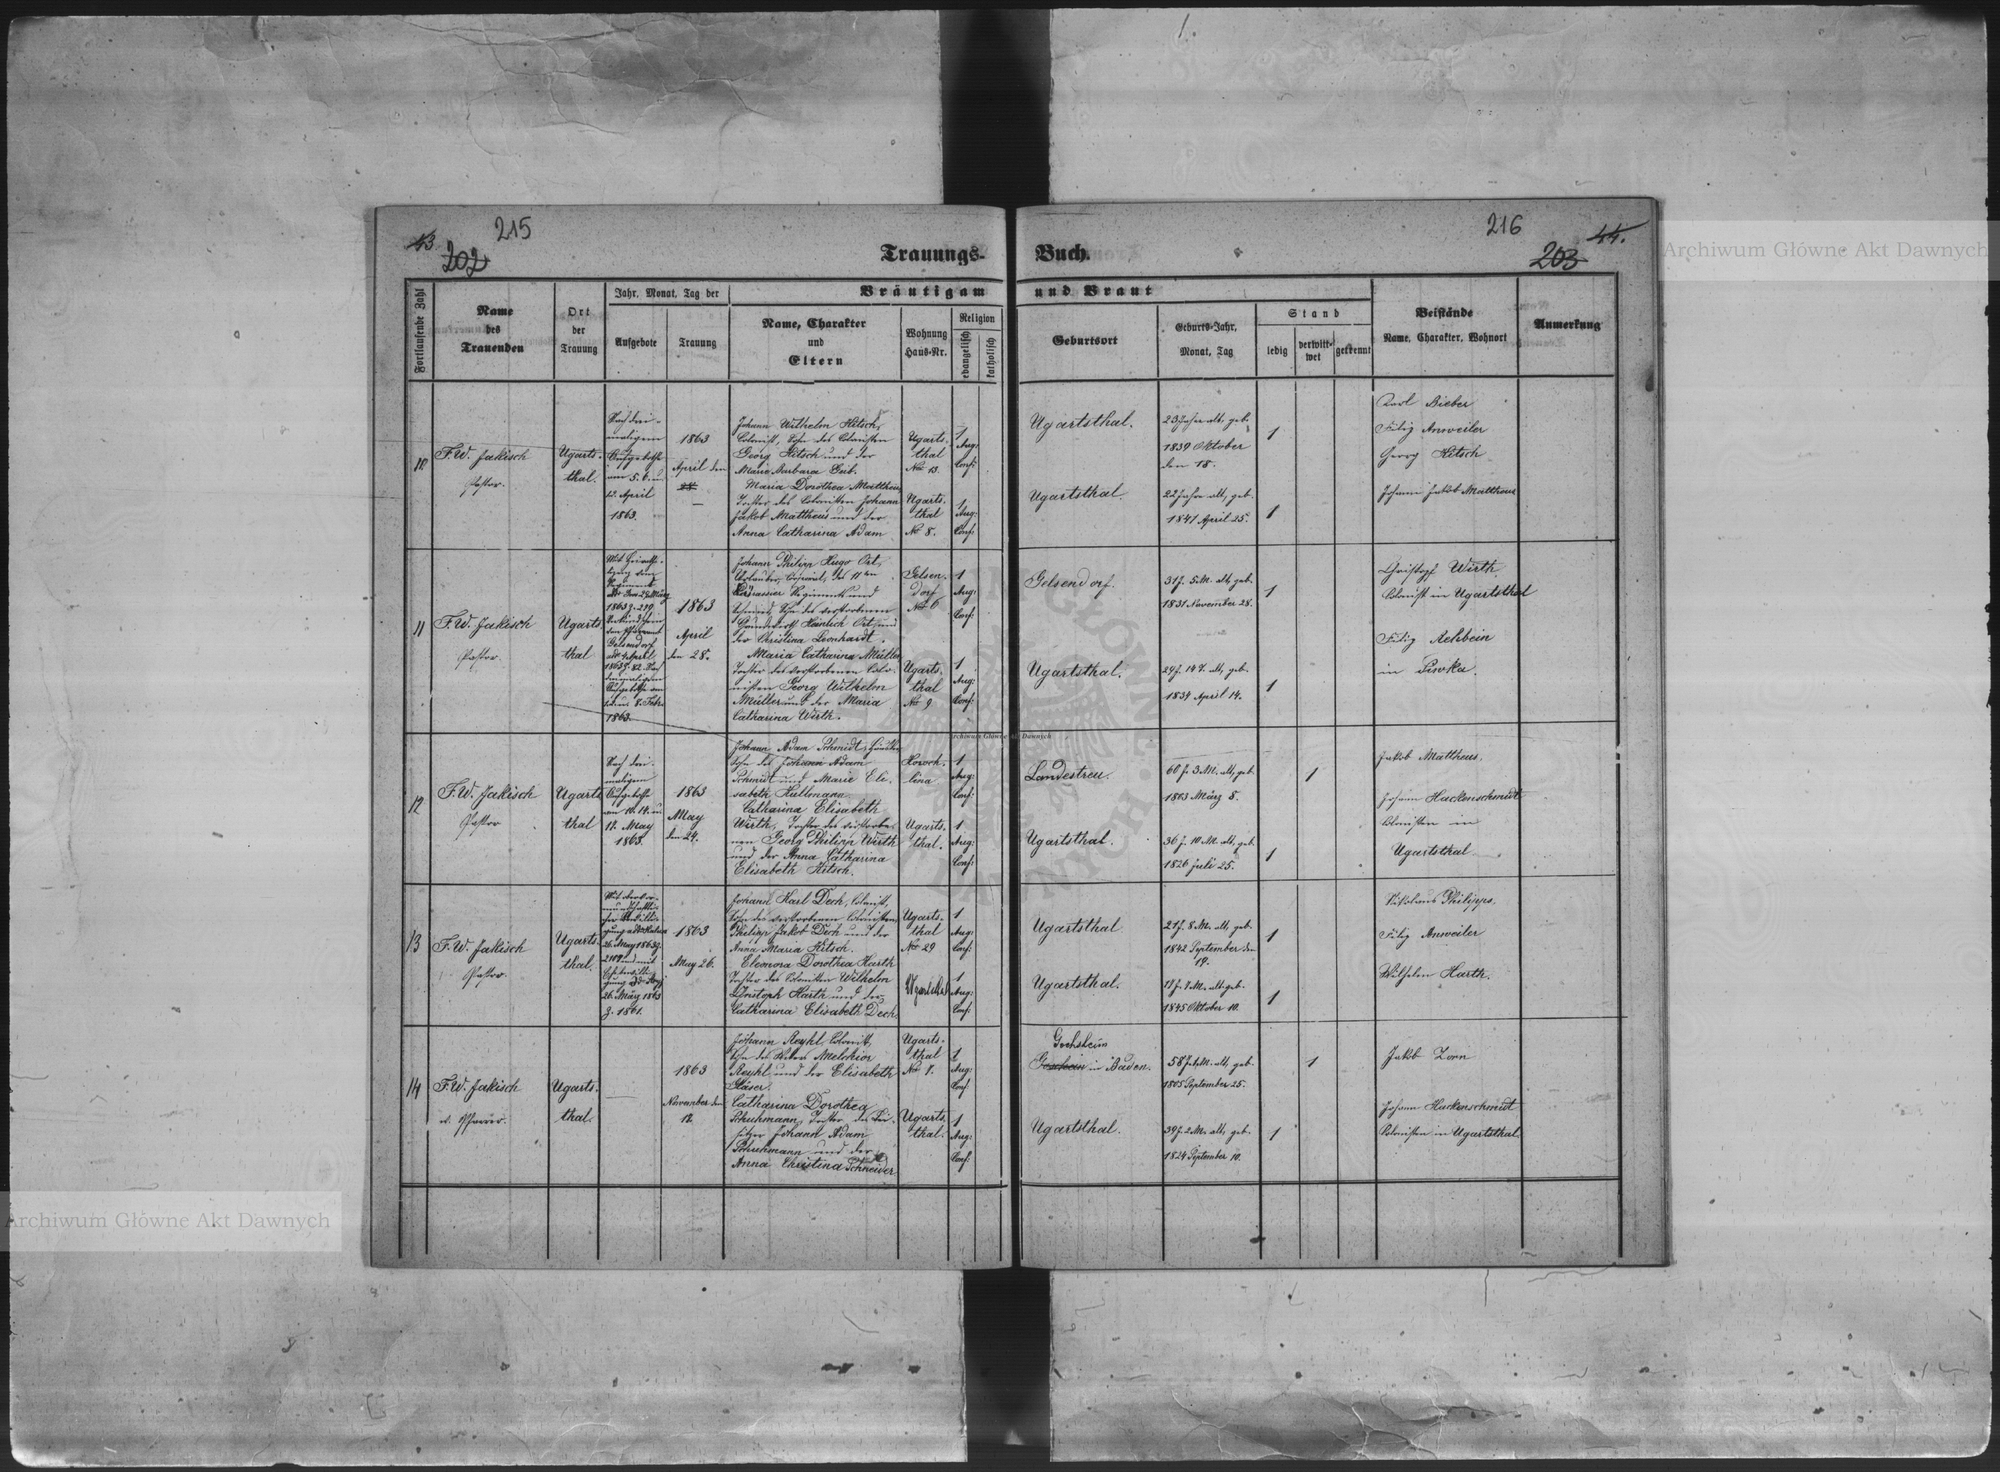 43
202
215
Trauungs-
Buch.
216
44.
203
Archiwum Główne Akt Dawnych
Fortlaufende Zahl
Name
des
Trauenden
Ort
der
Trauung
Jahr, Monat, Tag der
Aufgebote
Trauung
Bräutigam
und Braut
Name, Charakter
und
Eltern
Wohnung
Haus-Nr.
Religion
evangelisch
katholisch
Geburtsort
Geburts-Jahr,
Monat, Tag
Stand
ledig
verwitt-
wet
getrennt
Beistände
Name, Charakter, Wohnort
Anmerkung
10
F.W. Jakisch
Pastor.
Ugarts-
thal.
Nach drei-
maligem
Aufgebothe
am 5. 6. u.
12. April
1863.
1863
April den
Johann Wilhelm Hitsch,
Colonist, Sohn des Colonisten
Georg Hitsch und der
Maria Barbara Geib.
Maria Dorothea Mattheus
Tochter des Colonisten Johann
Jakob Mattheus und der
Anna Catharina Adam
Ugarts-
thal
No 13.
Ugarts-
thal
No 8.
1
Aug:
Conf:
1
Aug:
Conf:
Ugartsthal.
23 Jahre alt, geb.
1839 Oktober
den 18.
1
Ugartsthal.
22 Jahre alt, geb.
1841 April 25.
1
Karl Bieber
Filip Anweiler
Georg Hitsch
Johann Jakob Mattheus
11
F.W. Jakisch
Pastor.
Ugarts
thal
1863
April
den 28.
Johann Philipp Hugo Ort,
Urlauber, Corporal, des 11ten
Kürassier Regiments und
Schmied Sohn des verstorbenen
Heinrich Ort und
der Christina Leonhardt.
Maria Catharina Müller
Tochter des verstorbenen Colo-
nisten Georg Wilhelm
Müller und der Maria
Catharina Wirth.
Gelsen-
dorf
No 6
Ugarts-
thal
No 9
1
Aug:
Conf:
1
Aug:
Conf:
Gelsendorf.
31 J. 5 M. alt, geb.
1831 November 28.
1
Ugartsthal.
24 J. 14 T. alt, geb.
1834 April 14.
1
Christoph Wirth,
Colonist in Ugartsthal
Filip Rehbein
in Siwka.
12
F.W. Jakisch
Pastor
Ugarts
thal
Nach drei-
maligem
Aufgebothe
am 10. 14. u.
17. May
1863.
1863
May
den 24.
Johann Adam Schmidt,
Sohn des Johann Adam
Schmidt und Marie Eli-
sabeth Hullmann
Catharina Elisabeth
Wirth, Tochter des verstorbe-
nen Georg Philipp Wirth
und der Anna Catharina
Elisabeth Hitsch.
Horoch-
lina
Ugarts-
thal.
1
Aug:
Conf:
1
Aug:
Conf:
Landestreu.
60 J. 3 M. alt, geb.
1803 März 8.
1
Ugartsthal.
36 J. 10 M. alt, geb.
1826 Juli 25.
1
Jakob Mattheus.
Johann Hackenschmidt
Colonisten in
Ugartsthal
13
F.W. Jakisch
Pastor.
Ugarts-
thal.
1863
May 26.
Johann Karl Dech, Colonist,
Sohn des verstorbenen Colonisten
Philipp Jakob Dech und der
Anna Maria Hitsch.
Eleonora Dorothea Harth
Tochter des Colonisten Wilhelm
Christoph Harth und der
Catharina Elisabeth Dech.
Ugarts-
thal
No 29
Ugartsthal
1
Aug:
Conf:
1
Aug:
Conf:
Ugartsthal
21 J. 8 M. alt, geb.
1842 September den
19.
1
Ugartsthal.
17 J. 7 M. alt geb.
1845 Oktober 10.
1
Nikolaus Philipps.
Filip Anweiler
Wilhelm Harth.
14
F.W. Jakisch
Pfarrer.
Ugarts-
thal.
1863
November den
12.
Johann Reyhl Colonist,
Sohn des Melchior
Reyhl und der Elisabeth
Gläser.
Catharina Dorothea
Schuhmann, Tochter des
Johann Adam
Schuhmann und der
Anna Christina Schneider
Ugarts-
thal
No 1.
Ugarts-
thal.
1
Aug:
Conf
1
Aug:
Conf:
Gochsheim
in Baden.
58 J. 1 M. alt, geb.
1805 September 25.
1
Ugartsthal.
39 J. 2 M. alt, geb.
1824 September 10.
1
Jakob Zorn
Johann Hackenschmidt
Colonisten in Ugartsthal.
Archiwum Główne Akt Dawnych
Archiwum Główne Akt Dawnych